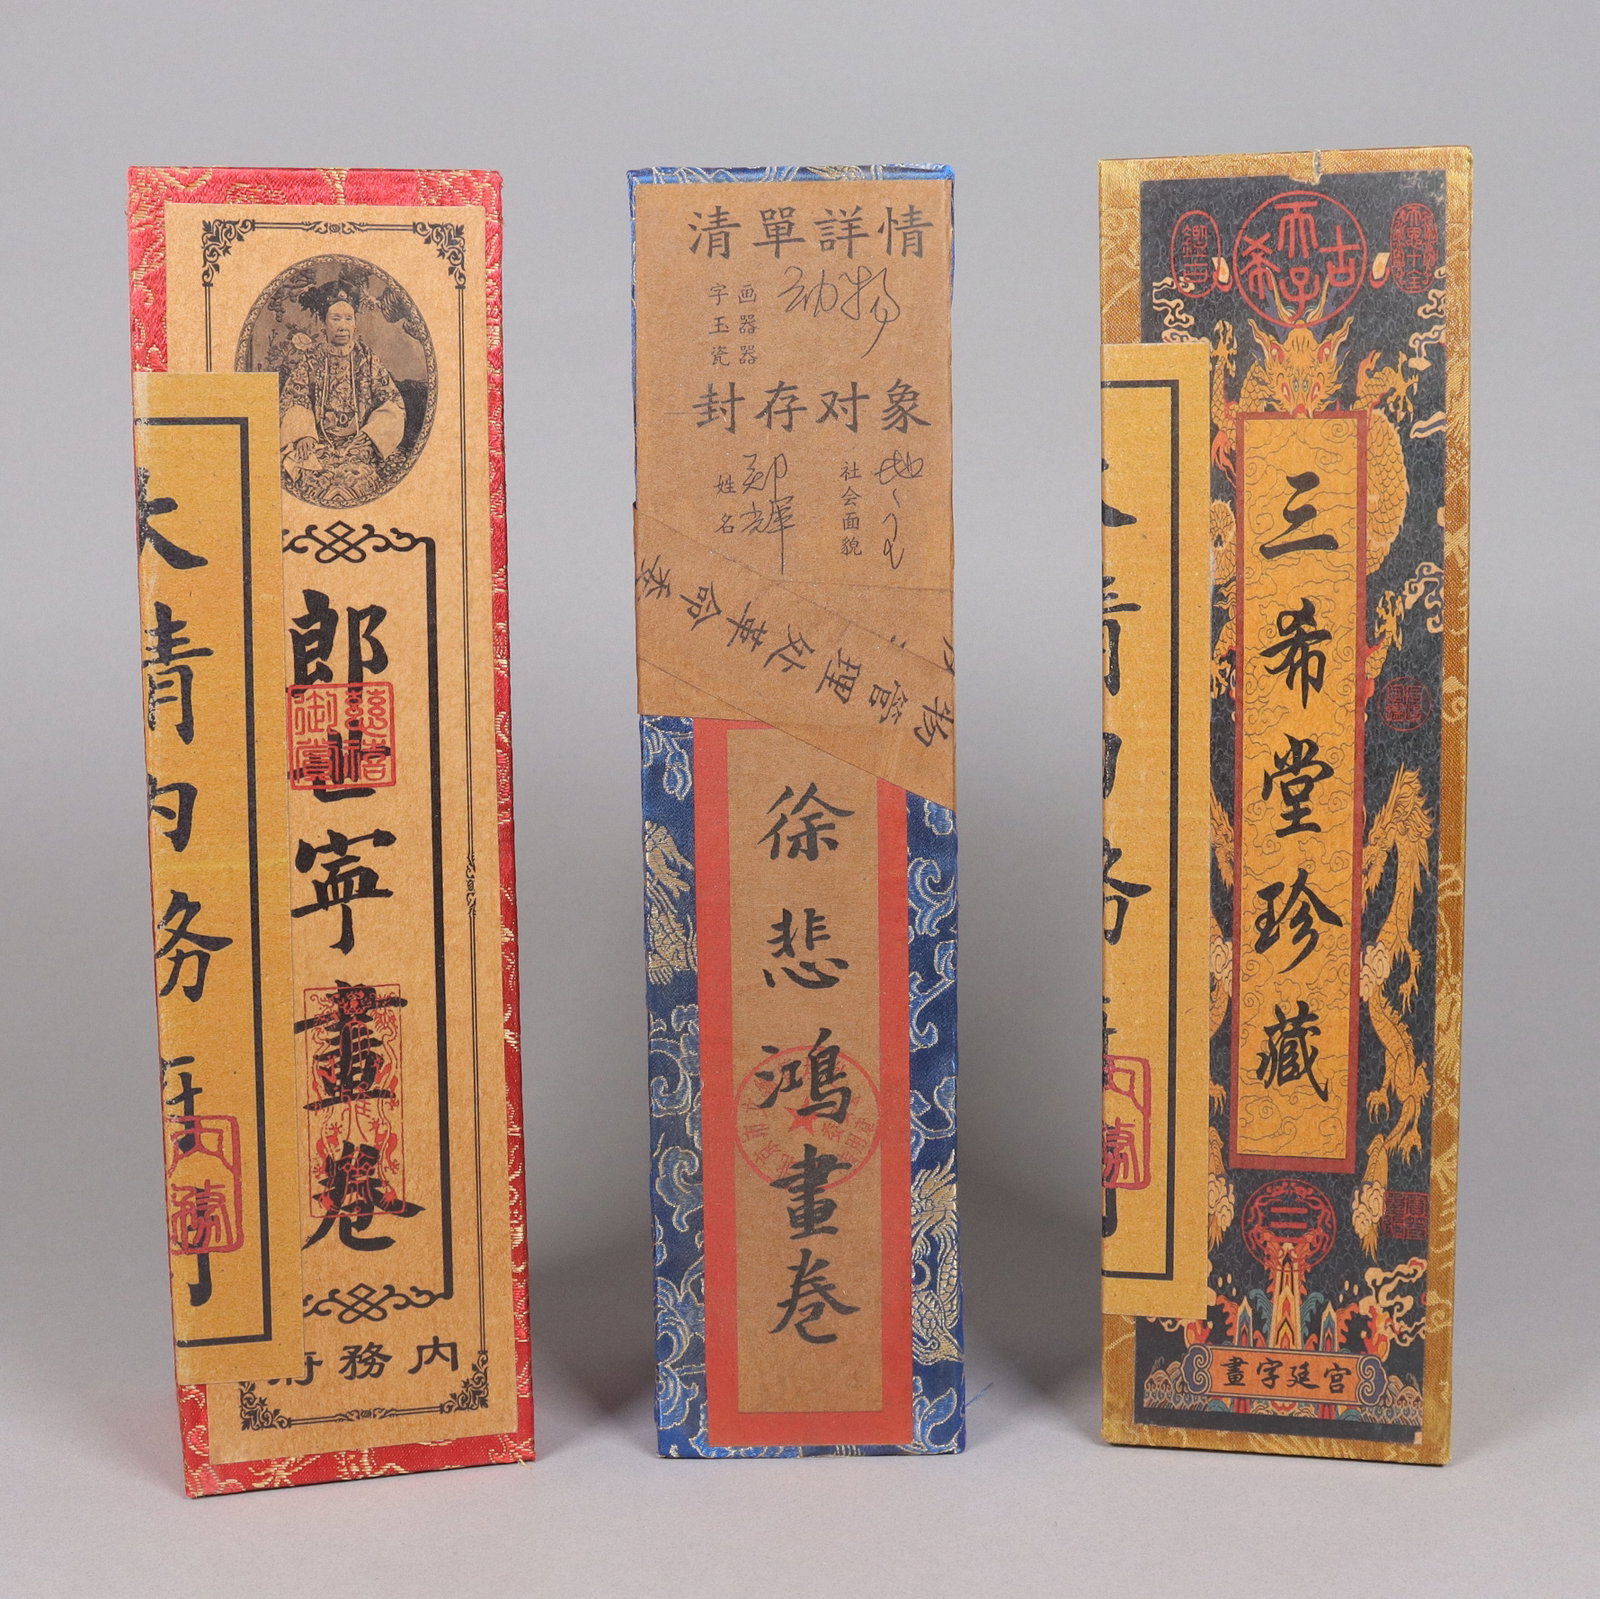 大清内务府
郎世寧畫卷
慈禧
御賞
内務府
内務
清單詳情
字画
玉器
瓷器
动物
封存对象
姓名
郑輝
社会面貌
物管理处革命委
徐悲鴻畫卷
古希天子
三希堂珍藏
宮廷字畫
清内务府
内務